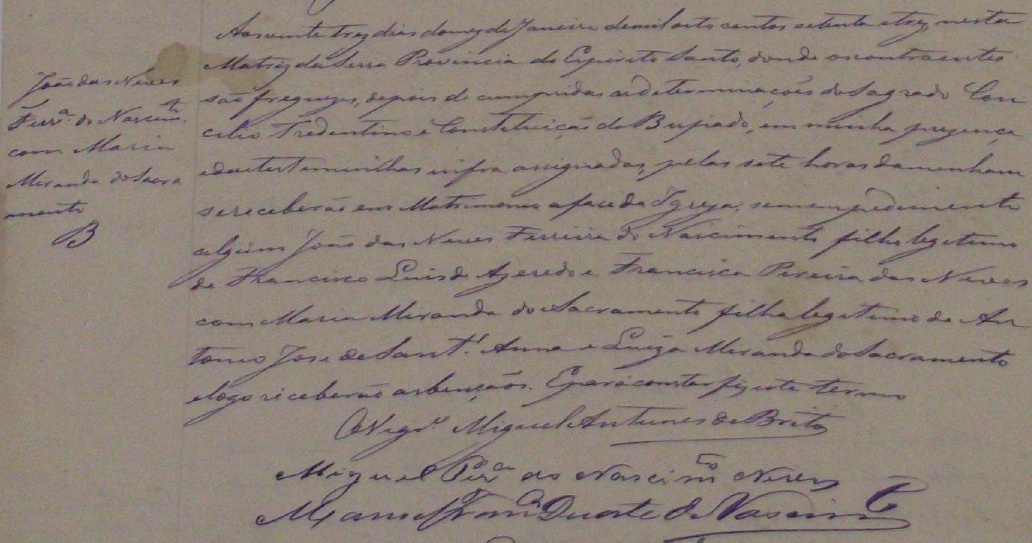 João das Neves
Ferrª. do Nascimto.
com Maria
Miranda do Sacra
mento
B
Aos vinte tres dias do mez de Janeiro de mil oito centos setenta e trez, nesta
Matriz da Serra Provincia do Espirito Santo, donde os contraentes
são freguezes, depois de cumpridas as determinações do Sagrado Con
cilio Tredentino e Constituição do Bispado, em minha prezença
e das testemunhas infra assignadas, pelas sete horas da menham
se receberão em Matrimonio a face da Igreja, sem empedimento
algum João das Neves Ferreira do Nascimento filho legitimo
de Francisco Luis de Azeredo e Francisca Pereira das Neves
com Maria Miranda do Sacramento filha legitima de An
tonio José de Sant'Anna e Luiza Miranda do Sacramento
e logo receberão as bençãos. E para constar fiz este termo
O Vigrº. Miguel Antunes de Brito
Miguel Perª das Neves
Manoel Duarte do